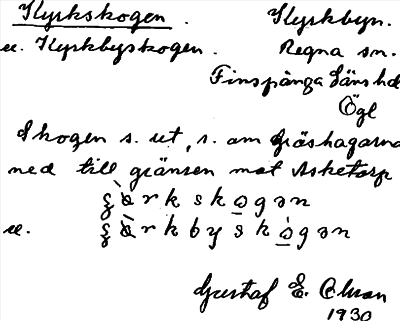 Kyrkskogen. Kyrkbyn.
el. Kyrkbyskogen. Regna sn.
Finspånga Länshd
Ögl
Skogen s. ut, s. om Gräshagarna
ned till gränsen mot Asketorp
ʂ ò r k s k o g ə n
el. ʂ ò r k b y s k ò g ə n
Gustaf E.
1930